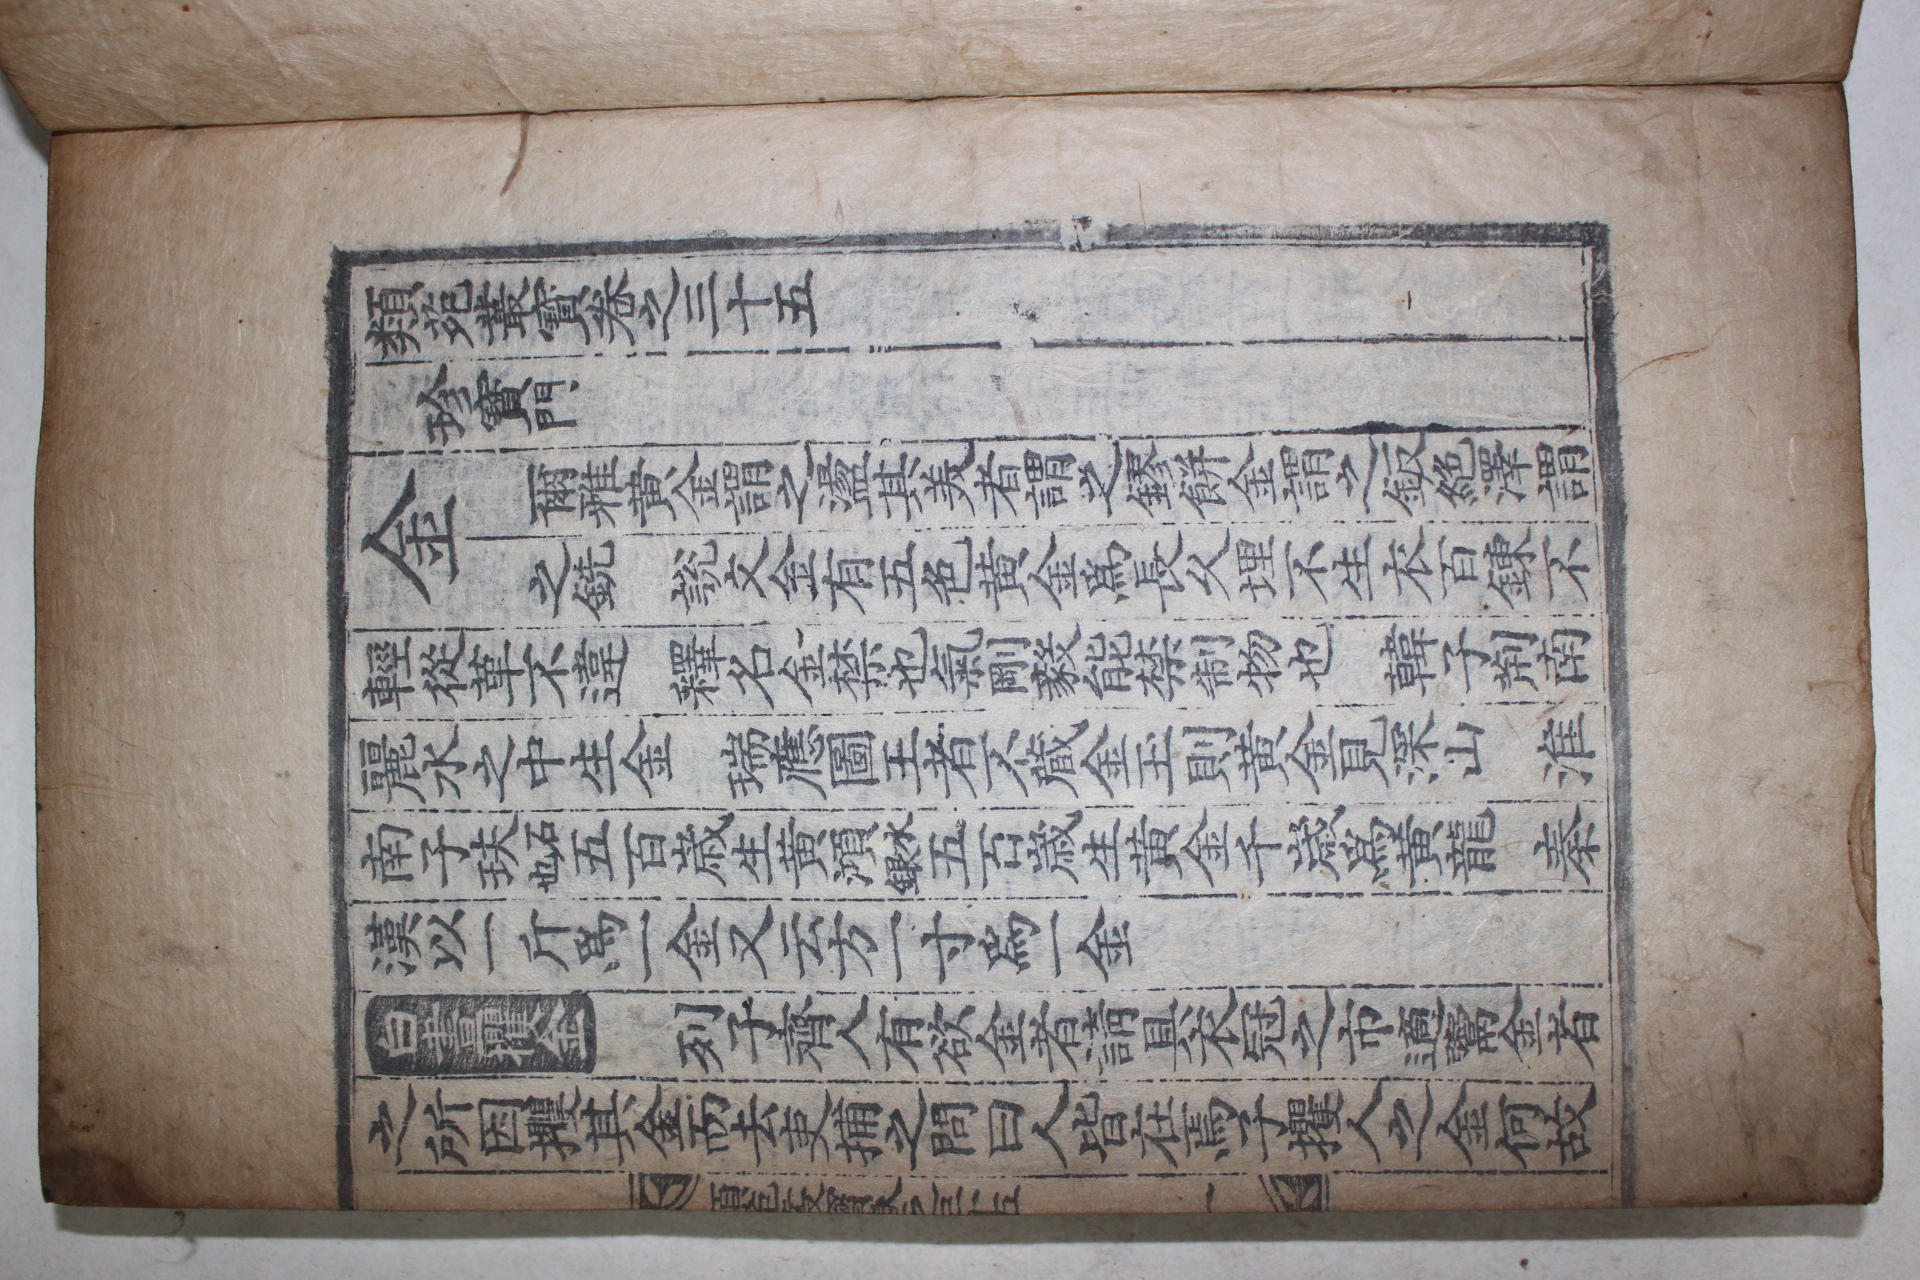 類苑叢寶卷之三十五
珍寶門
金
爾雅黃金謂之盪其美者謂之鏐餅金謂之鈑絶澤謂
之銑 說文金有五色黃金爲長久埋不生衣百鍊不
輕從革不違 釋名金禁也氣剛毅能禁制物也 韓子荆南
麗水之中生金 瑞應圖王者不蔵金玉則黃金見深山 淮
南子玞石也五百歲生黃澒水銀五百歲生黃金千歲爲黃龍 秦
漢以一斤爲一金又云方一寸爲一金
白晝攫金 列子齊人有欲金者請具衣冠之市適鬻金者
之所因攫其金而去吏捕之問曰人皆在焉子攫人之金何故
類苑叢寶卷之三十五 一